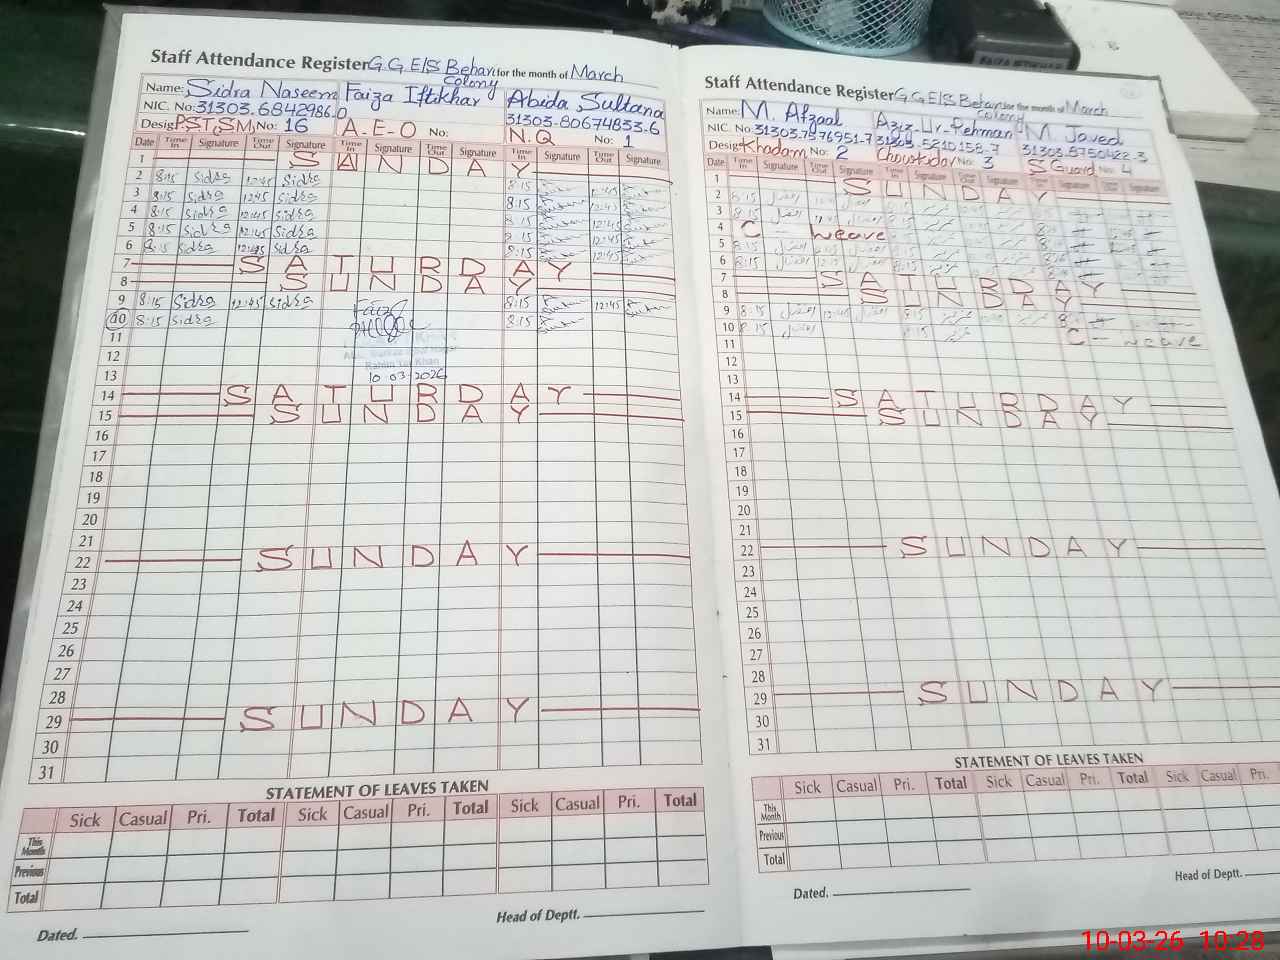 Staff Attendance Register G.G.E/S Behari colony for the month of March
Name: Sidra Naseem Faiza Iftikhar Abida Sultana
NIC. No: 31303.6842986.0 31303-80674833.6
Desig: P.S.T, S.M No: 16 A-E-O No: N.Q No: 1
Date Time In Signature Time Out Signature Time In Signature Time Out Signature Time In Signature Time Out Signature
1 S U N D A Y
2 8:15 Sidra 12:45 Sidra 8:15
3 8:15 Sidra 12:45 Sidra 8:15 12:45
4 8:15 Sidra 12:45 Sidra 8:15 12:45
5 8:15 Sidra 12:45 Sidra 8:15 12:45
6 8:15 Sidra 12:45 Sidra 8:15 12:45
7 S A T U R D A Y
8 S U N D A Y
9 8:15 Sidra 12:45 Sidra 8:15 12:45
10 8:15 Sidra Faiza 8:15
11
12
13 10-03-2026
14 S A T U R D A Y
15 S U N D A Y
16
17
18
19
20
21
22 S U N D A Y
23
24
25
26
27
28
29 S U N D A Y
30
31
STATEMENT OF LEAVES TAKEN
Sick Casual Pri. Total Sick Casual Pri. Total Sick Casual Pri. Total
This Month
Previous
Total
Dated. Head of Deptt.
Staff Attendance Register G.G.E/S Behari colony for the month of March
Name: M. Afzaal Aziz-Ur-Rehman M. Javed
NIC. No: 31303-7976951-7 31303-5210158-7 31303-8750422-3
Desig: Khadam No: 2 Chowkidar No: 3 S Guard No: 4
Date Time In Signature Time Out Signature Time In Signature Time Out Signature Time In Signature
1 S U N D A Y
2 8:15
3 8:15
4 C - Leave
5 8:15
6 8:15
7 S A T U R D A Y
8 S U N D A Y
9 8:15 12:45 8:15
10 8:15 8:15 C - Leave
11
12
13
14 S A T U R D A Y
15 S U N D A Y
16
17
18
19
20
21
22 S U N D A Y
23
24
25
26
27
28
29 S U N D A Y
30
31
STATEMENT OF LEAVES TAKEN
Sick Casual Pri. Total Sick Casual Pri. Total Sick Casual Pri.
This Month
Previous
Total
Dated. Head of Deptt.
10-03-26 10:28